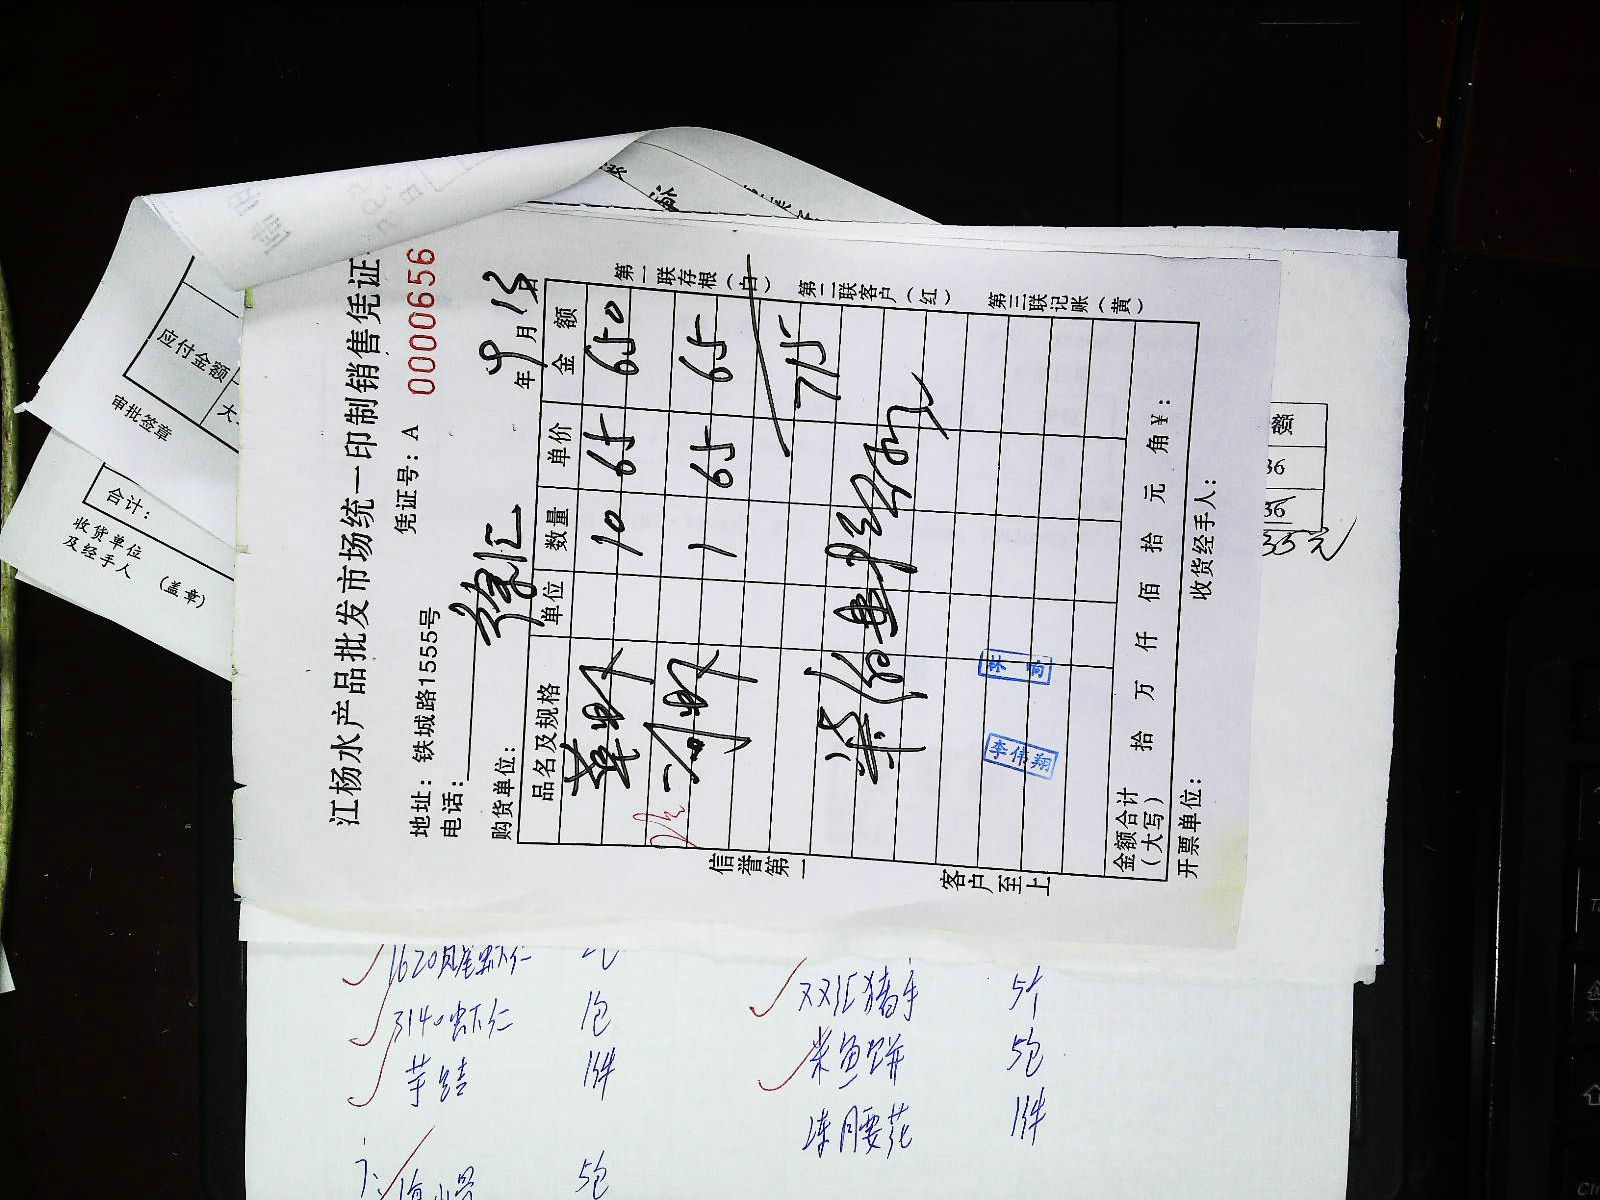 江杨水产品批发市场统一印制销售凭证
地址：铁城路1555号 凭证号：A 0000656
电话：
购货单位： 徐汇 年 9 月 15 日
品名及规格 单位 数量 单价 金额
草虾 10 65 650
河虾 1 65 65
715
李伟翔
金额合计（大写） 拾 万 仟 佰 拾 元 角 ¥：
开票单位： 收货经手人：
信誉第一
客户至上
第一联存根（白）
第二联客户（红）
第三联记账（黄）
应付金额
大
审批签章
合计：
收货单位
及经手人
（盖章）
额
36
36
元
1620凤尾虾仁
3140虾仁 1包
芋结 1件
5包
双汇猪手 5个
米鱼饼 5包
冻腰花 1件